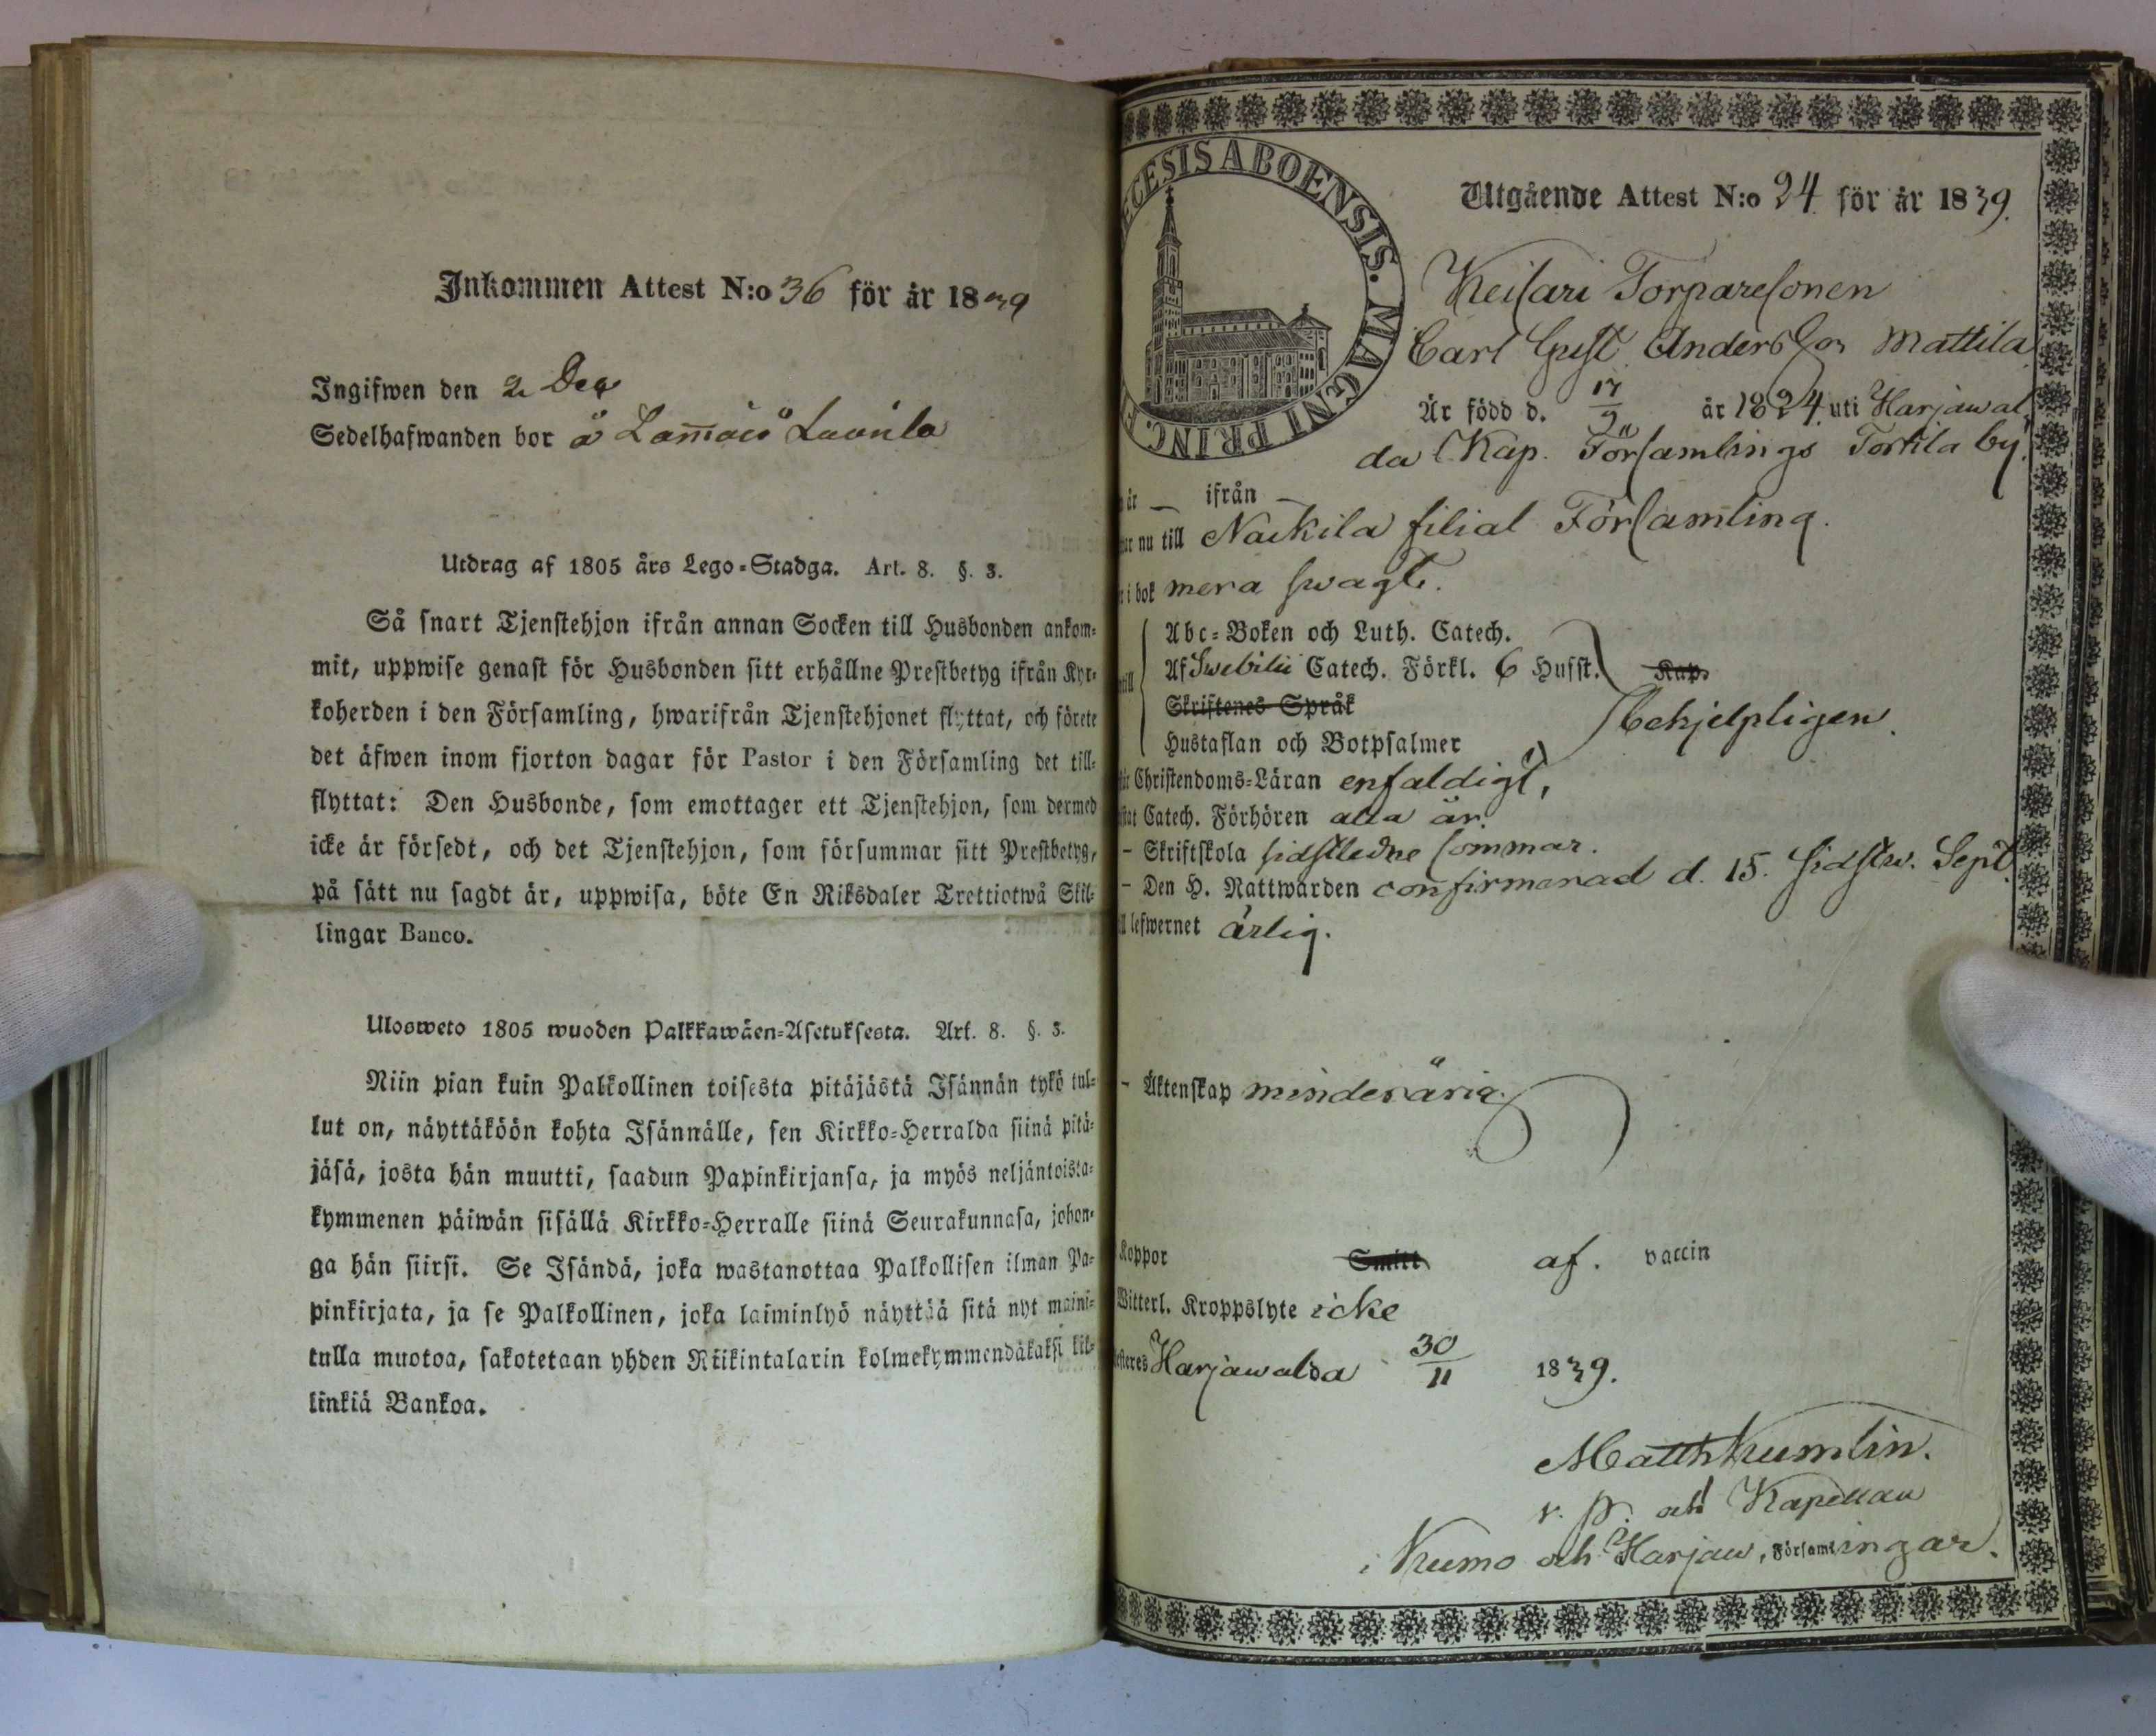 Inkommen Attest N:o 36 för år 1839
Ingifwen den 2 Dec
Sedelhafwanden bor å
Utdrag af 1805 års Lego=Stadga. Art. 8. §. 3.
Så snart Tjenstehjon ifrån annan Socken till Husbonden ankom=
mit, uppwise genast för Husbonden sitt erhållne Prestbetyg ifrån Kyr=
koherden i den Församling, hwarifrån Tjenstehjonet flyttat, och förete
det äfwen inom fjorton dagar för Pastor i den Församling det till=
flyttat: Den Husbonde, som emottager ett Tjenstehjon, som dermed
icke är försedt, och det Tjenstehjon, som försummar sitt Prestbetyg,
på sätt nu sagdt är, uppwisa, böte En Riksdaler Trettiotwå Skil=
lingar Banco.
Ulosweto 1805 wuoden Palkkawäen=Asetuksesta. Art. 8. §. 3.
Niin pian kuin Palkollinen toisesta pitäjästä Isännän tykö tul=
lut on, näyttäköön kohta Isännälle, sen Kirkko=Herralda siinä pitä=
jäsä, josta hän muutti, saadun Papinkirjansa, ja myös neljäntoista=
kymmenen päiwän sisällä Kirkko=Herralle siinä Seurakunnasa, johon=
ga hän siirsi. Se Isändä, joka wastanottaa Palkollisen ilman Pa=
pinkirjata, ja se Palkollinen, joka laiminlyö näyttää sitä nyt maini=
tulla muotoa, sakotetaan yhden Riikintalarin kolmekymmendäkaksi kil=
linkiä Bankoa.
ECESIS ABOENSIS. MAGNI PRINC. F
Utgående Attest N:o 24 för år 1839.
Keisari Torparesonen
Carl Gust Andersson Mattila
Är född d. 17/9 år 1824 uti Harjawal
da Kap. Församlings Torttila by.
år — ifrån —
nu till Nackila filial Församling.
i bok mera swagt.
Abc=Boken och Luth. Catech.
Af Swebilii Catech. Förkl. 6 Hufst. Kap.
Skriftenes Språk
behjelpligen.
Hustaflan och Botpsalmer
Christendoms=Läran enfaldigt,
Catech. Förhören alla år.
– Skriftskola sidstledne sommar.
– Den H. Nattwarden confirmerad d. 15. sidstw. Sept.
lefwernet ärlig.
– Äktenskap minderårig.
Koppor Smitt af. vaccin
Witterl. Kroppslyte icke
Harjawalda 30/11 1839.
Matth Kumlin.
v. p. och Kapellan
i Kumo och Harjaw. Församlingar.